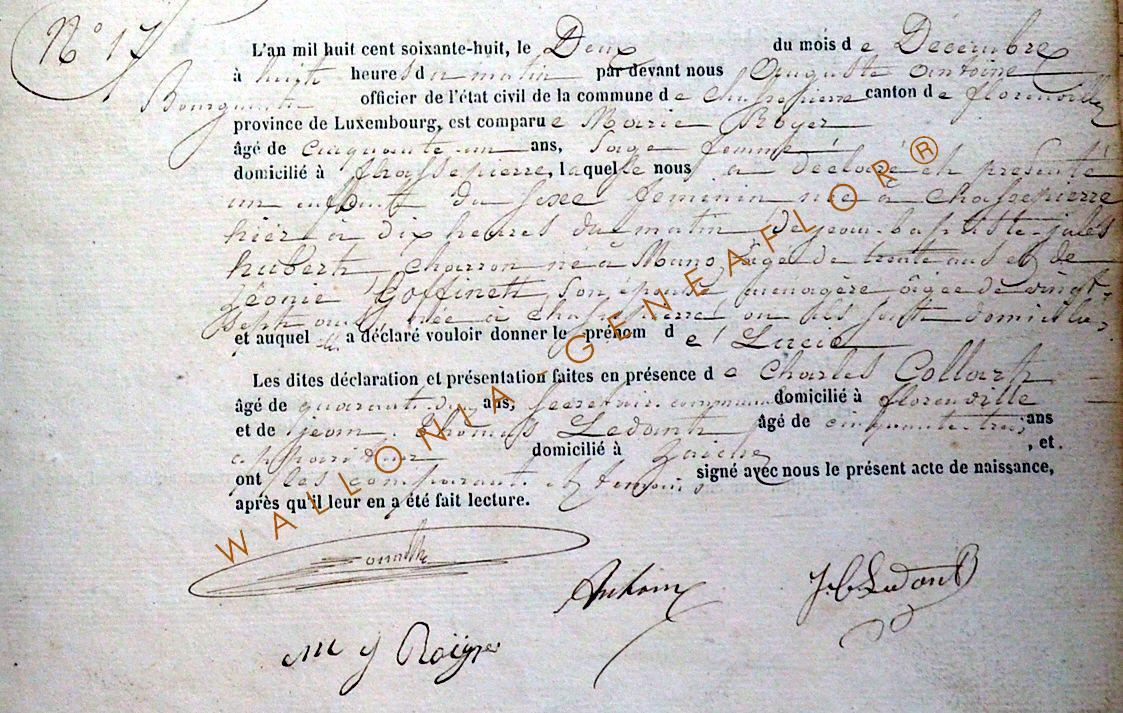 N° 17
L'an mil huit cent soixante-huit, le Deux du mois de Décembre
à huit heures du matin par devant nous Auguste Antoine
Bourgmestre officier de l'état civil de la commune de Chassepierre canton de florenville
province de Luxembourg, est comparue Marie Royer
âgé de cinquante un ans, sage femme
domicilié à Chassepierre, laquelle nous a déclaré et présenté
un enfant du sexe feminin née à Chassepierre
hier à dix heures du matin, de jean-baptiste-jules
hubert Charron né à Muno âgé de trente ans et de
Léonie Goffinett, son épouse ménagère âgée de vingt-
sept ans, née à chassepierre où ils sont domiciliés
et auquel il a déclaré vouloir donner le prénom de Lucie
Les dites déclaration et présentation faites en présence de Charles Collart
âgé de quarante ans, secrétaire communal domicilié à florenville
et de jean Thomas Ledant âgé de cinquante trois ans
domicilié à Laiche, et.
ont les comparants et temoins signé avec nous le présent acte de naissance,
après qu'il leur en a été fait lecture.
Antoine
J. C. Ledant
M J Roïyer
WALLONIA-GENEAFLOR®